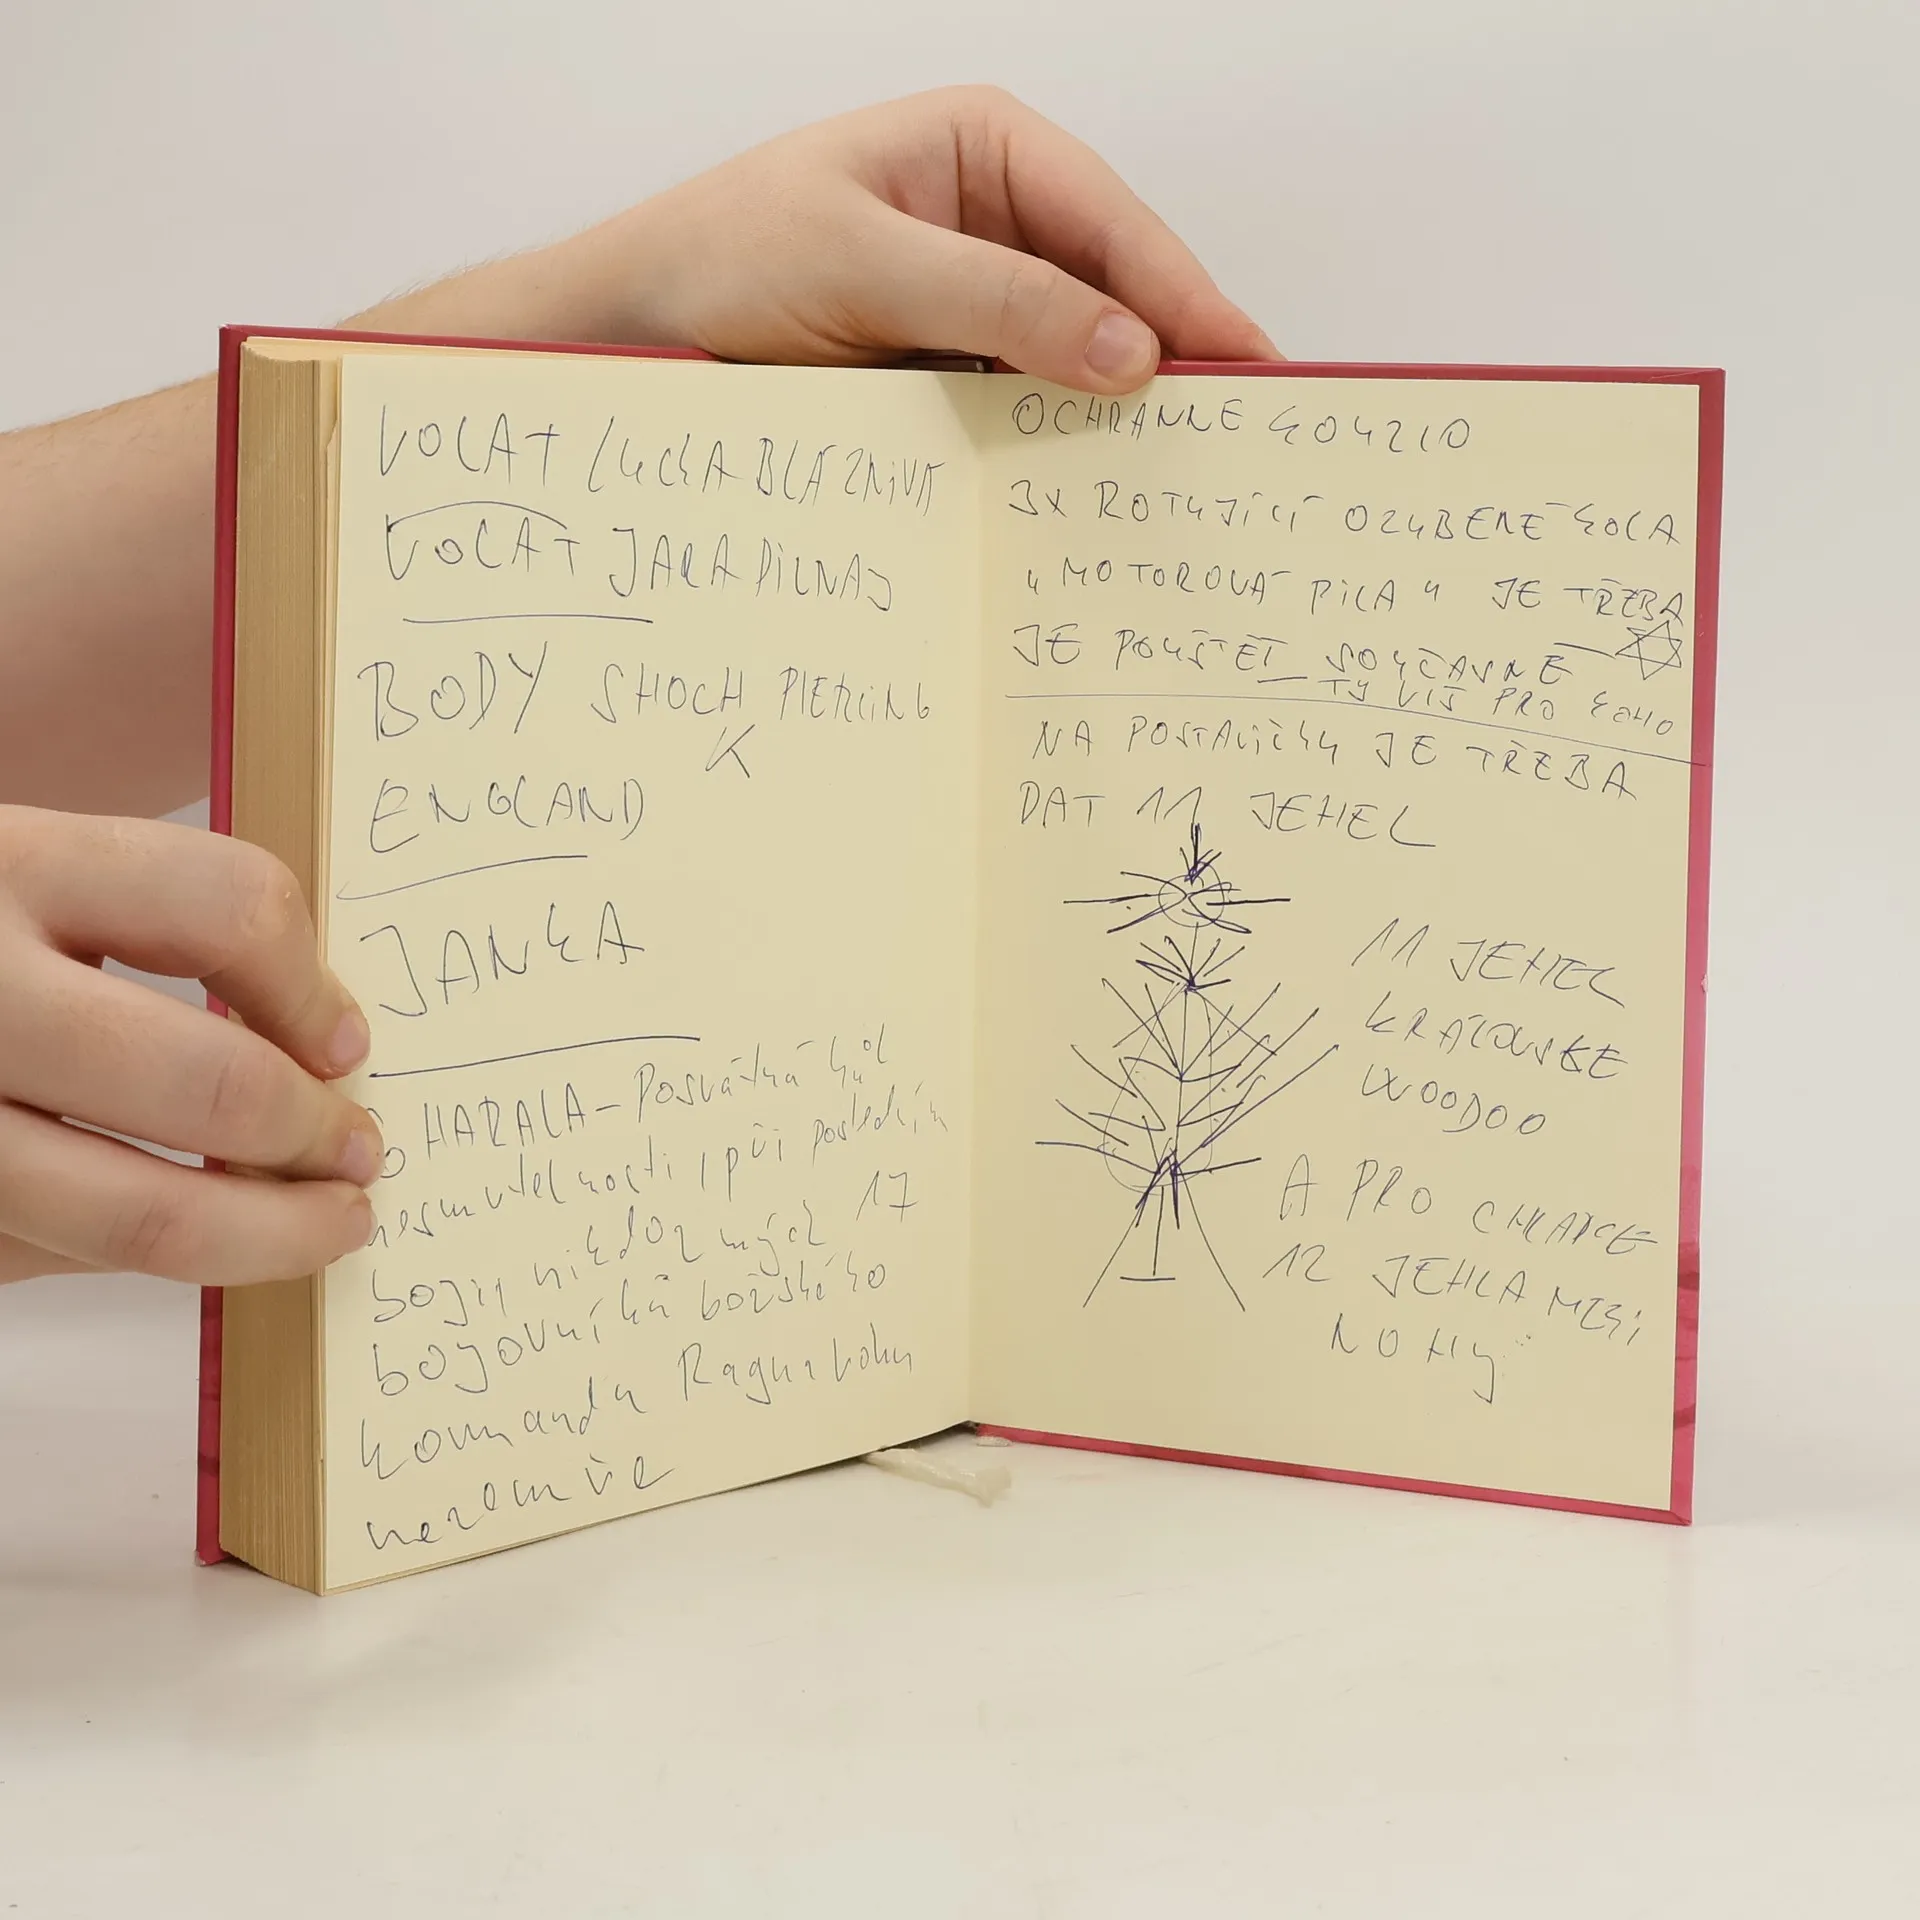 VOLAT LUCKA BLÁZNIVÁ
VOLAT JARA PILNAJ
BODY SHOCK PIERCING
K
ENGLAND
JANKA
HARALA - Posvátná hůl
nesmrtelnosti, při posledním
boji, nikdo z mých 17
bojovníků božského
komanda Ragnaroku
nezemře
OCHRANNÉ KOUZLO
3X ROTUJÍCÍ OZUBENÉ KOLA
"MOTOROVÁ PILA" JE TŘEBA
JE POUŠTĚT SOUČASNĚ
TY VÍŠ PRO KOHO
NA POSTAVIČKU JE TŘEBA
DAT 11 JEHEL
11 JEHEL
KRÁLOVSKÉ
WOODOO
A PRO CHLAPCE
12 JEHLA MEZI
NOHY